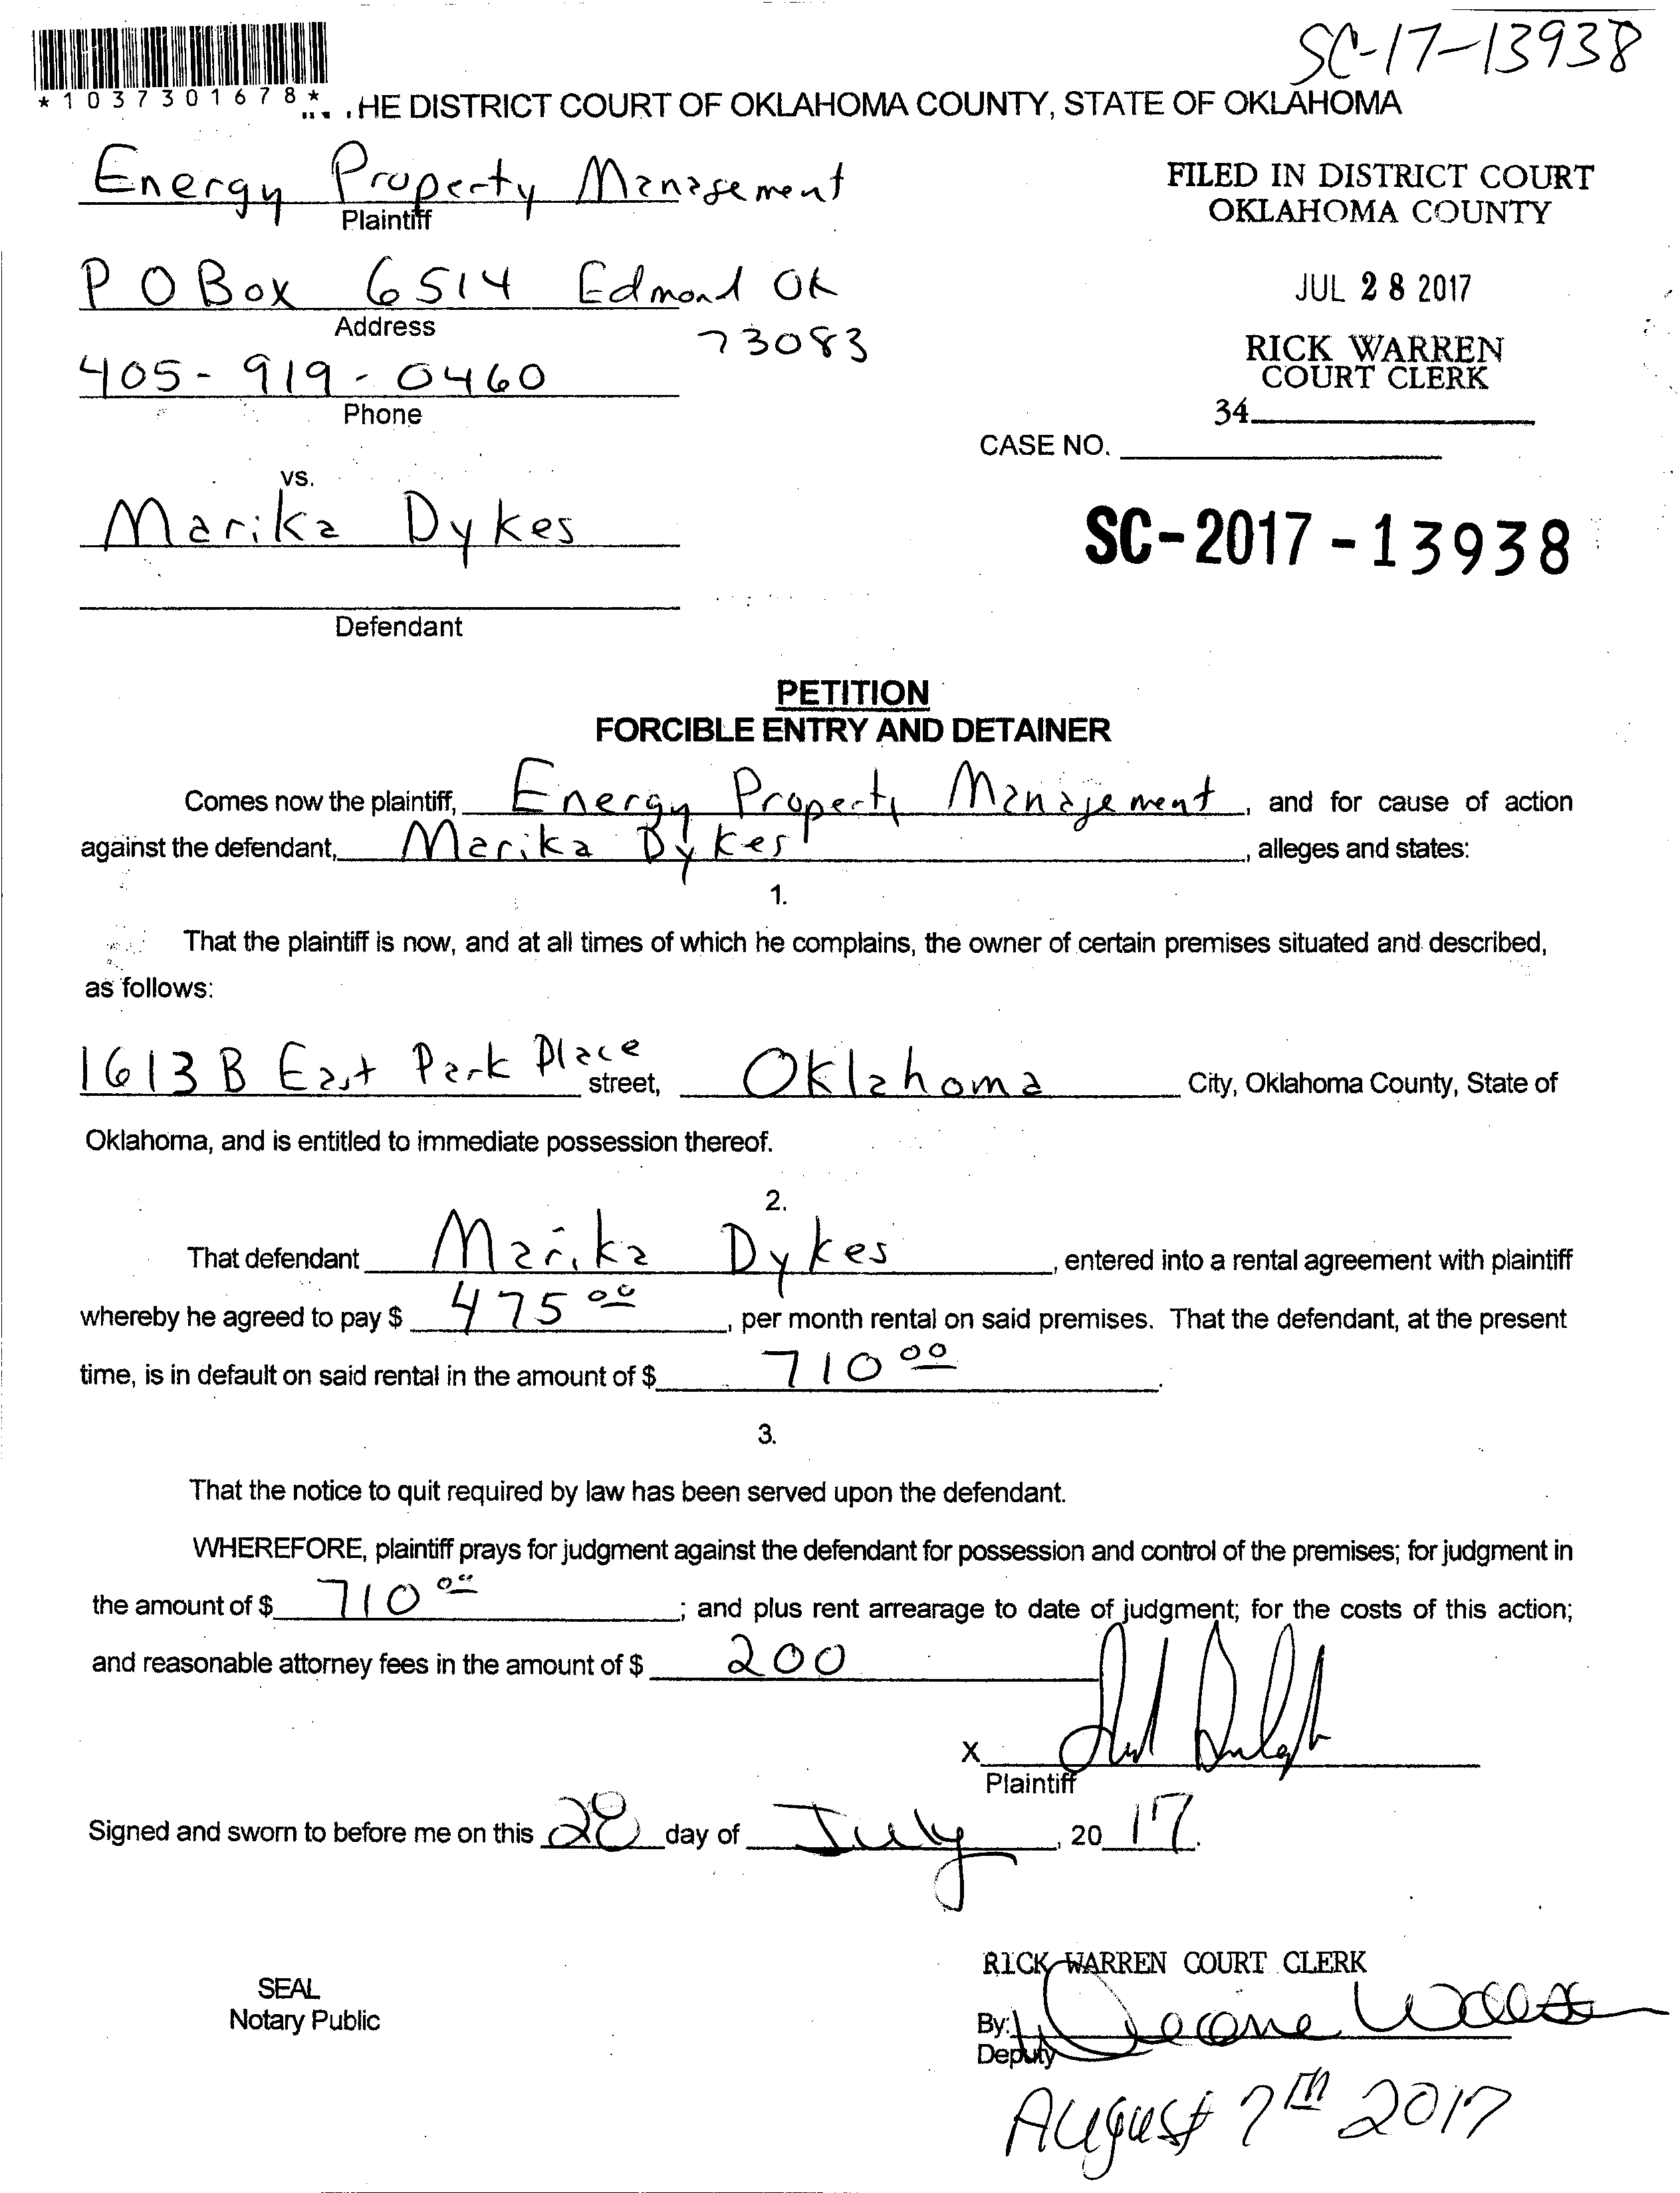 SC-17-13938
*1037301678*
HE DISTRICT COURT OF OKLAHOMA COUNTY, STATE OF OKLAHOMA
Energy Property Management
Plaintiff
FILED IN DISTRICT COURT
OKLAHOMA COUNTY
P O Box 6514 Edmond OK
Address
73083
JUL 28 2017
405-919-0460
Phone
RICK WARREN
COURT CLERK
34
CASE NO.
vs.
Marika Dykes
SC-2017-13938
Defendant
PETITION
FORCIBLE ENTRY AND DETAINER
Comes now the plaintiff, Energy Property Management, and for cause of action
against the defendant, Marika Dykes, alleges and states:
1.
That the plaintiff is now, and at all times of which he complains, the owner of certain premises situated and described,
as follows:
1613 B East Park Place street, Oklahoma City, Oklahoma County, State of
Oklahoma, and is entitled to immediate possession thereof.
2.
That defendant Marika Dykes, entered into a rental agreement with plaintiff
whereby he agreed to pay $ 475 00, per month rental on said premises. That the defendant, at the present
time, is in default on said rental in the amount of $ 710 00.
3.
That the notice to quit required by law has been served upon the defendant.
WHEREFORE, plaintiff prays for judgment against the defendant for possession and control of the premises; for judgment in
the amount of $ 710 00; and plus rent arrearage to date of judgment; for the costs of this action;
and reasonable attorney fees in the amount of $ 200
X
Plaintiff
Signed and sworn to before me on this 28 day of July, 20 17.
RICK WARREN COURT CLERK
SEAL
Notary Public
By:
Deputy
August 7th 2017